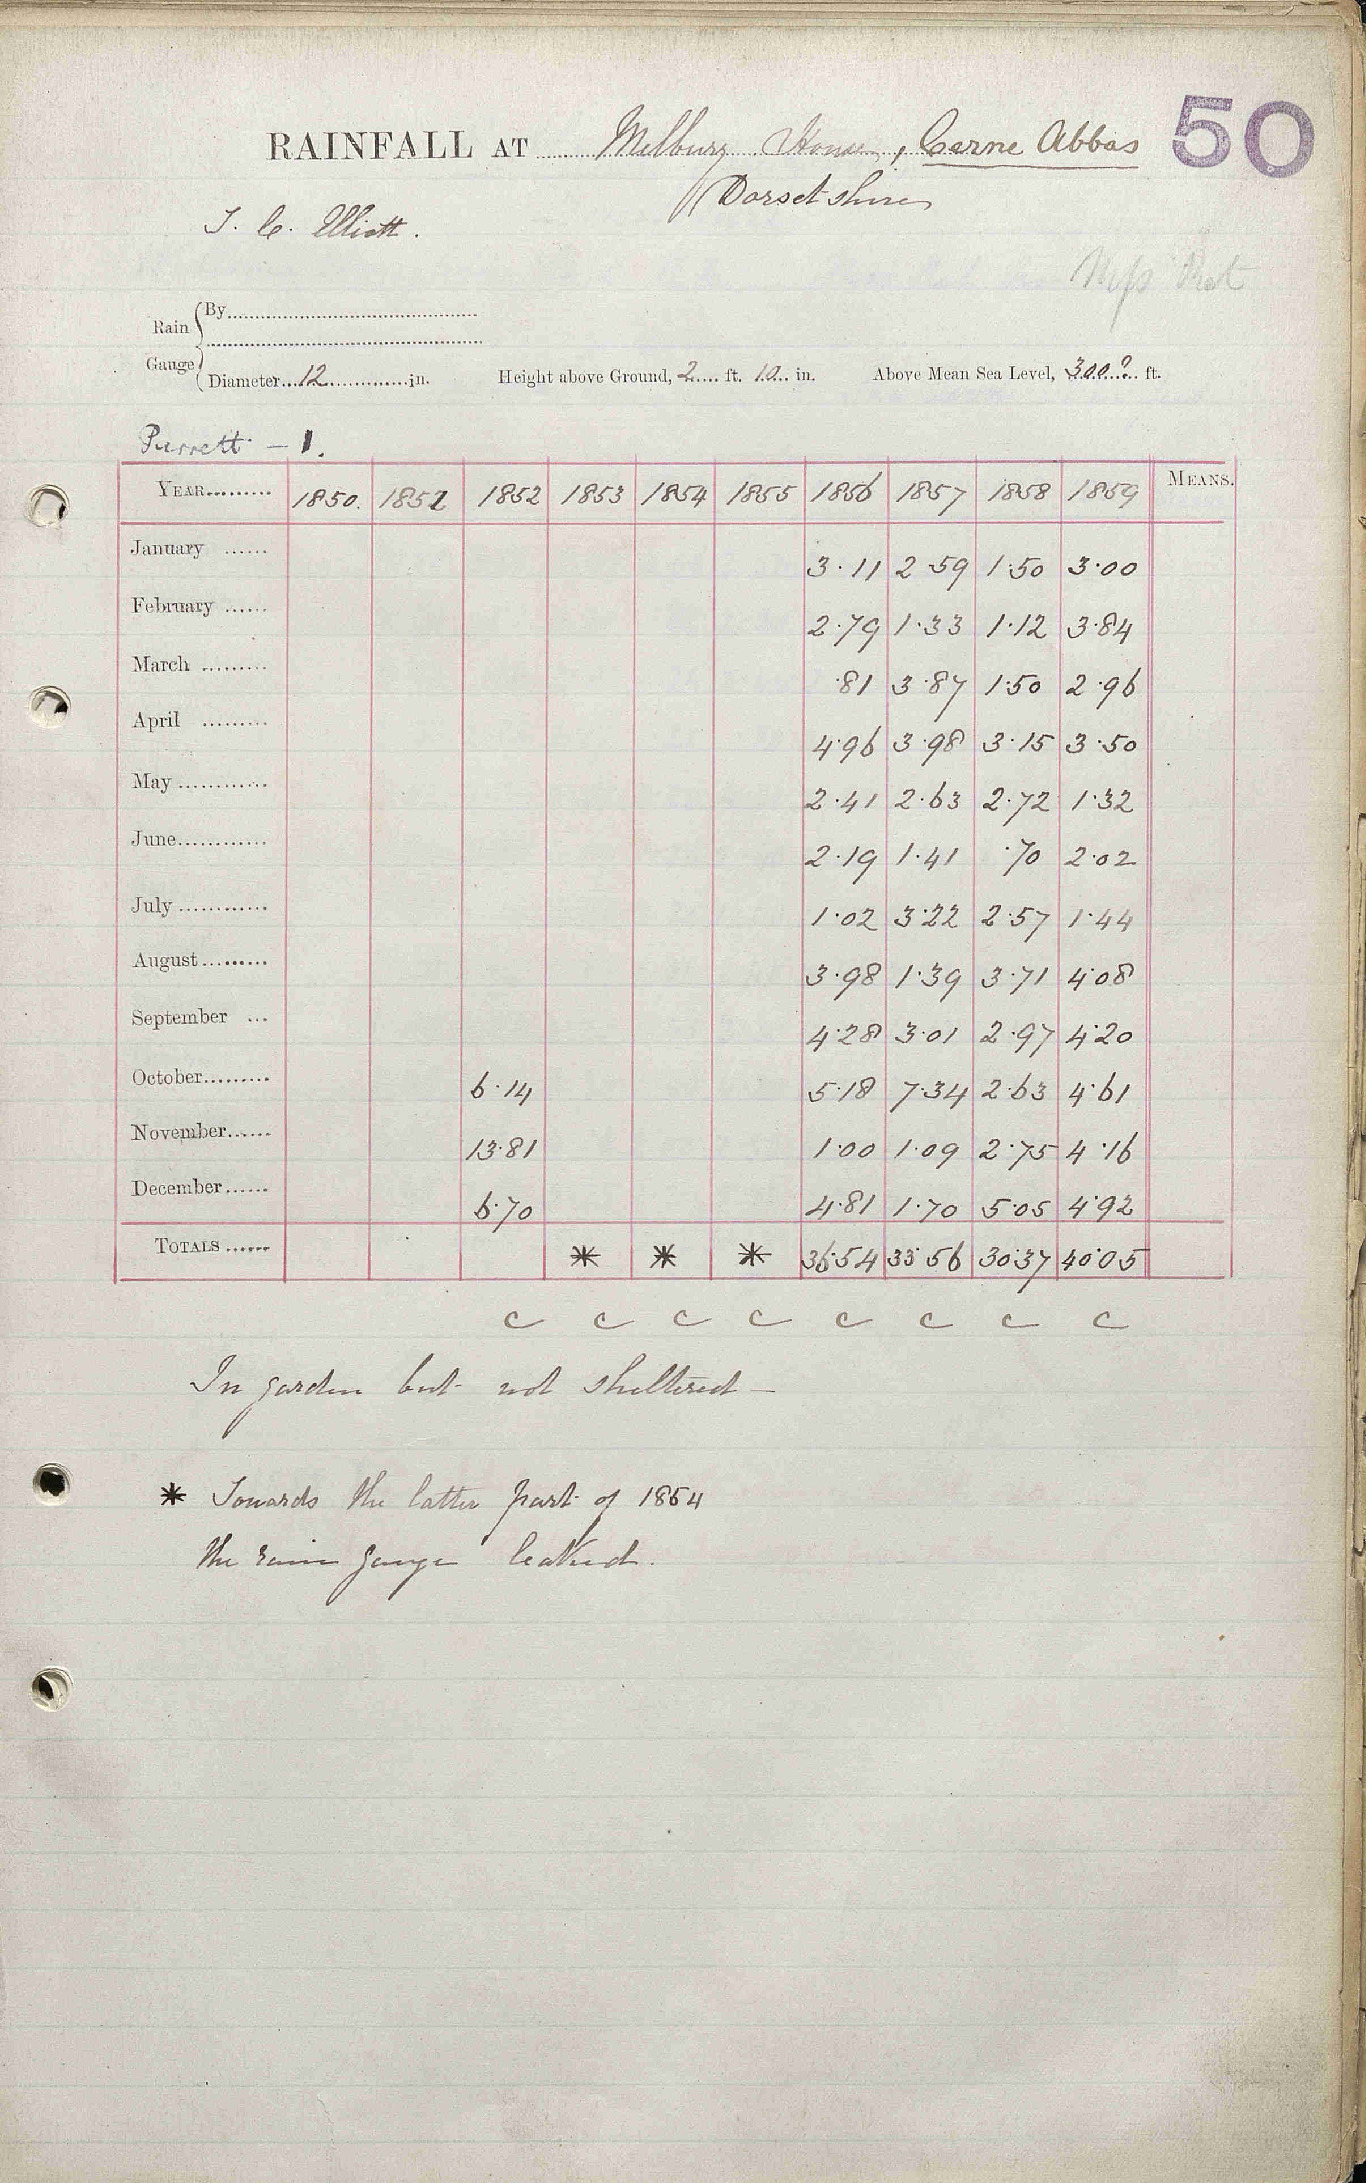 RAINFALL AT Melbury House, Cerne Abbas
50
Dorsetshire
T. C. Elliott.
Rain Gauge
By
Diameter 12 in. Height above Ground, 2 ft. 10 in. Above Mean Sea Level, 300? ft.
Parrett - 1.
YEAR 1850. 1851 1852 1853 1854 1855 1856 1857 1858 1859 MEANS.
January 3.11 2.59 1.50 3.00
February 2.79 1.33 1.12 3.84
March .81 3.87 1.50 2.96
April 4.96 3.98 3.15 3.50
May 2.41 2.63 2.72 1.32
June 2.19 1.41 .70 2.02
July 1.02 3.22 2.57 1.44
August 3.98 1.39 3.71 4.08
September 4.28 3.01 2.97 4.20
October 6.14 5.18 7.34 2.63 4.61
November 13.81 1.00 1.09 2.75 4.16
December 6.70 4.81 1.70 5.05 4.92
TOTALS * * * 36.54 33.56 30.37 40.05
c c c c c c c c
In garden but not sheltered -
* Towards the latter part of 1854
the rain gauge leaked.